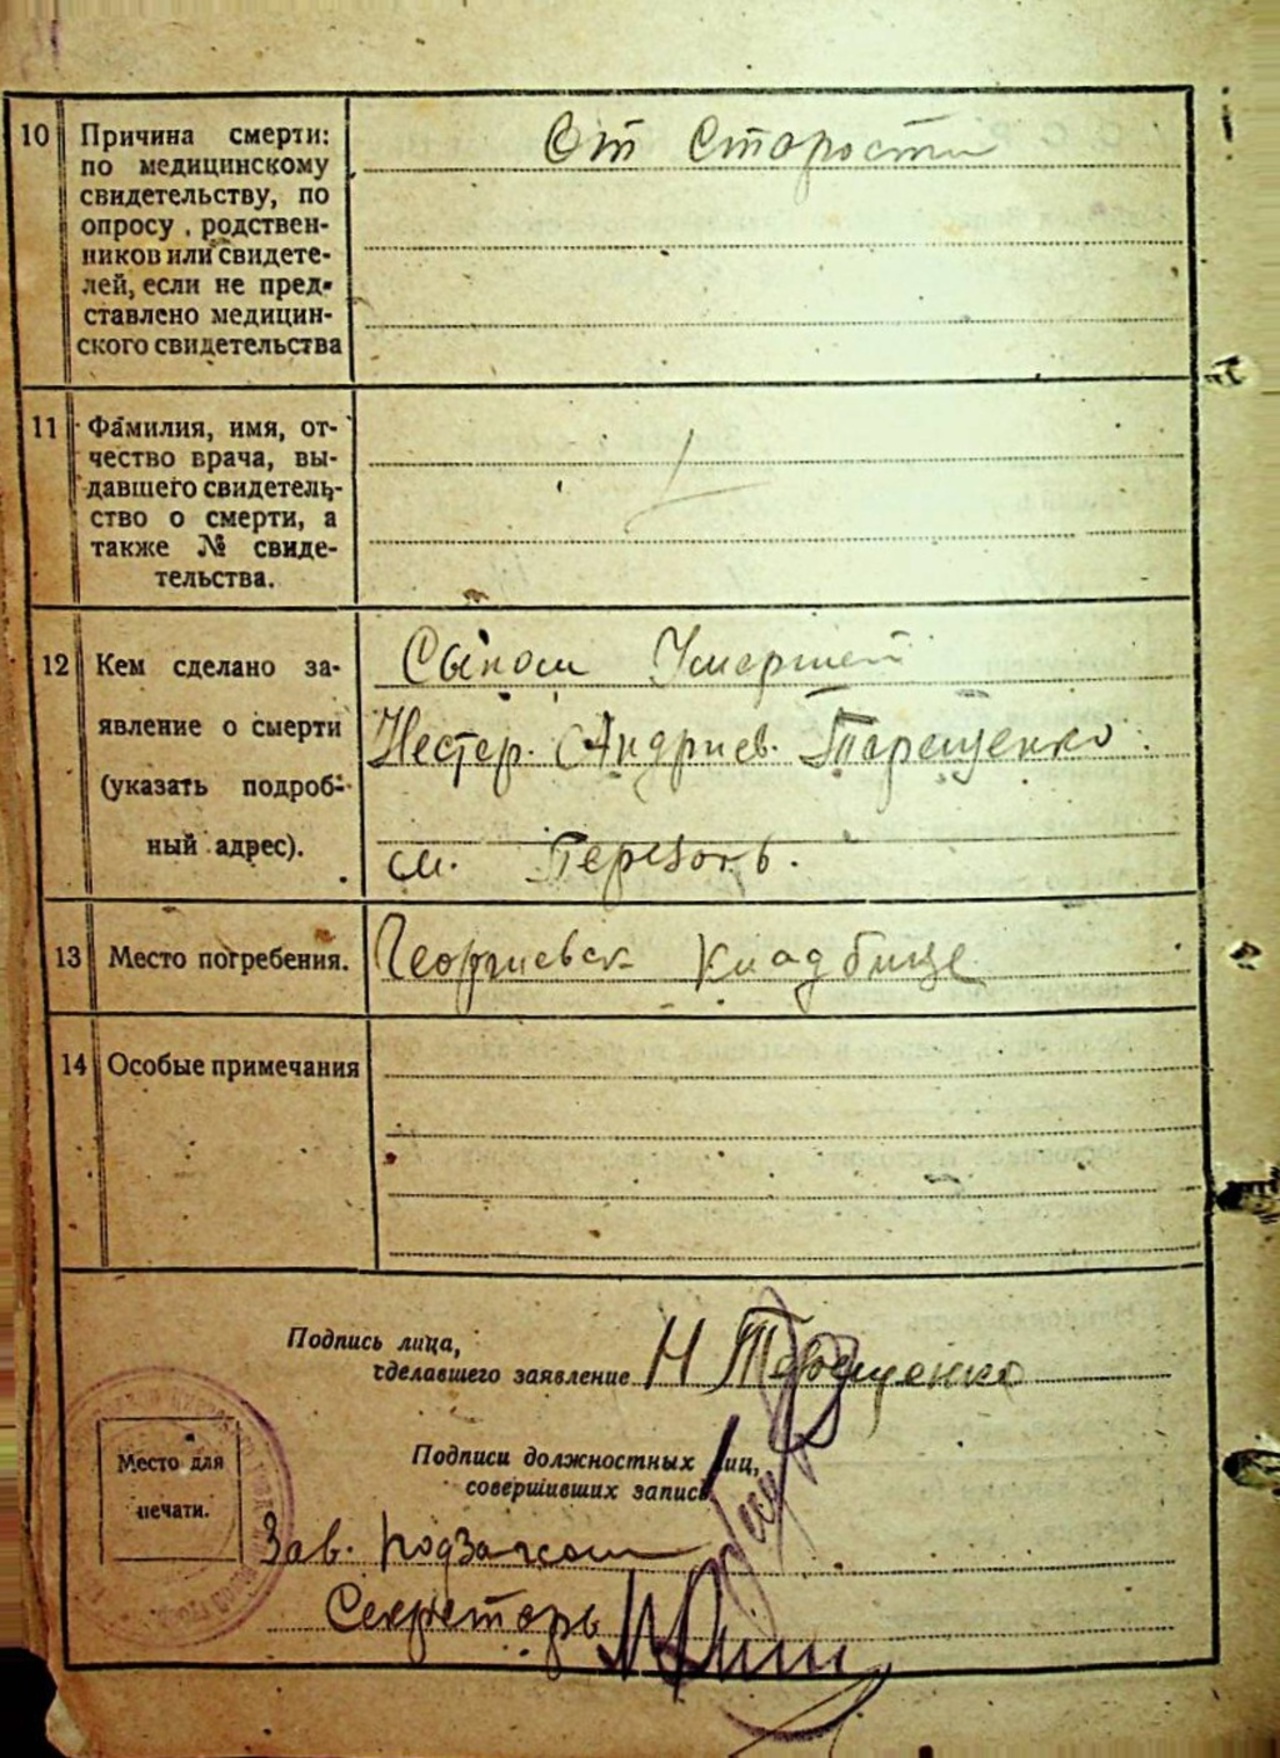 10 Причина смерти:
по медицинскому
свидетельству, по
опросу, родствен-
ников или свидете-
лей, если не пред-
ставлено медицин-
ского свидетельства
От Старости
11 Фамилия, имя, от-
чество врача, вы-
давшего свидетель-
ство о смерти, а
также № свиде-
тельства.
12 Кем сделано за-
явление о смерти
(указать подроб-
ный адрес).
Сыном Умершей
Нестер. Андриев. Терещенко
м.
13 Место погребения.
Георгиевск Кладбище
14 Особые примечания
Подпись лица,
сделавшего заявление Н Терещенко
Подписи должностных лиц,
совершивших запись
Место для
печати.
Зав. подзагсом
Секретарь